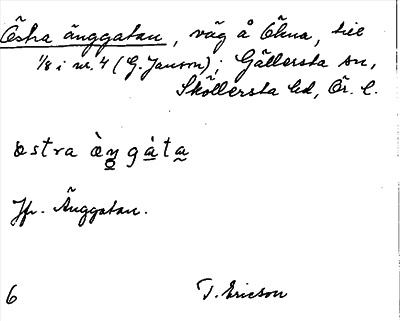 Östra änggatan, väg å Öhna, till
1/8 i nr. 4 (G. Janson); Gällersta sn,
Sköllersta hd, Ör. l.
östra ängata
Jfr. Änggatan.
6 T. Ericson